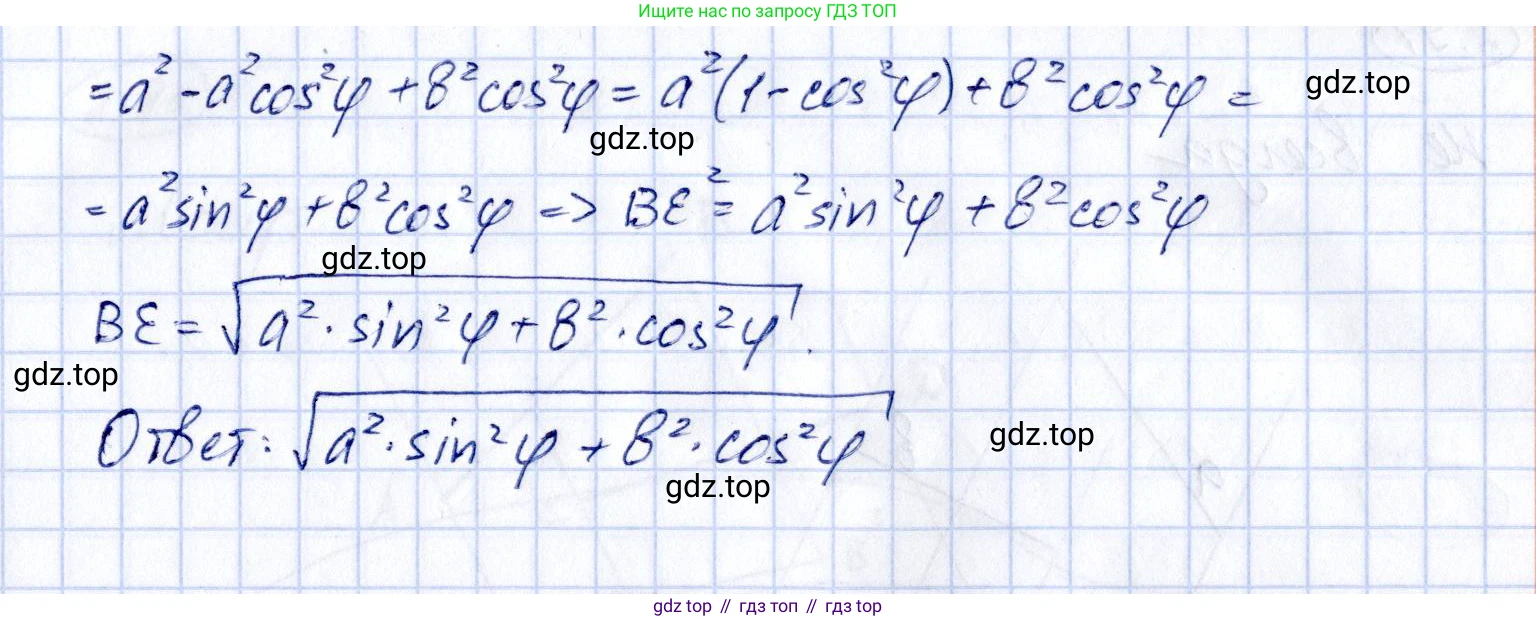 Ищите нас по запросу ГДЗ ТОП
= a² - a²cos²φ + b²cos²φ = a²(1 - cos²φ) + b²cos²φ =
gdz.top
gdz.top
= a²sin²φ + b²cos²φ => BE² = a²sin²φ + b²cos²φ
gdz.top
BE = √(a² · sin²φ + b² · cos²φ).
gdz.top
Ответ: √(a² · sin²φ + b² · cos²φ)
gdz.top
gdz.top
gdz top // гдз топ // гдз top